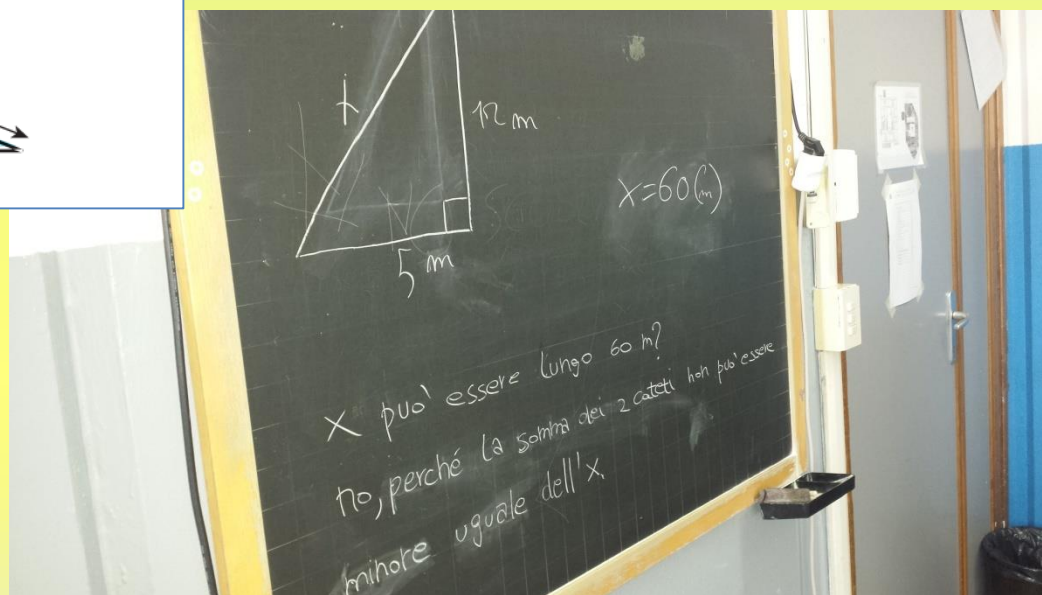 x
12 m
5 m
x=60(m)
x può essere lungo 60 m?
no, perché la somma dei 2 cateti non può essere
minore uguale dell'x